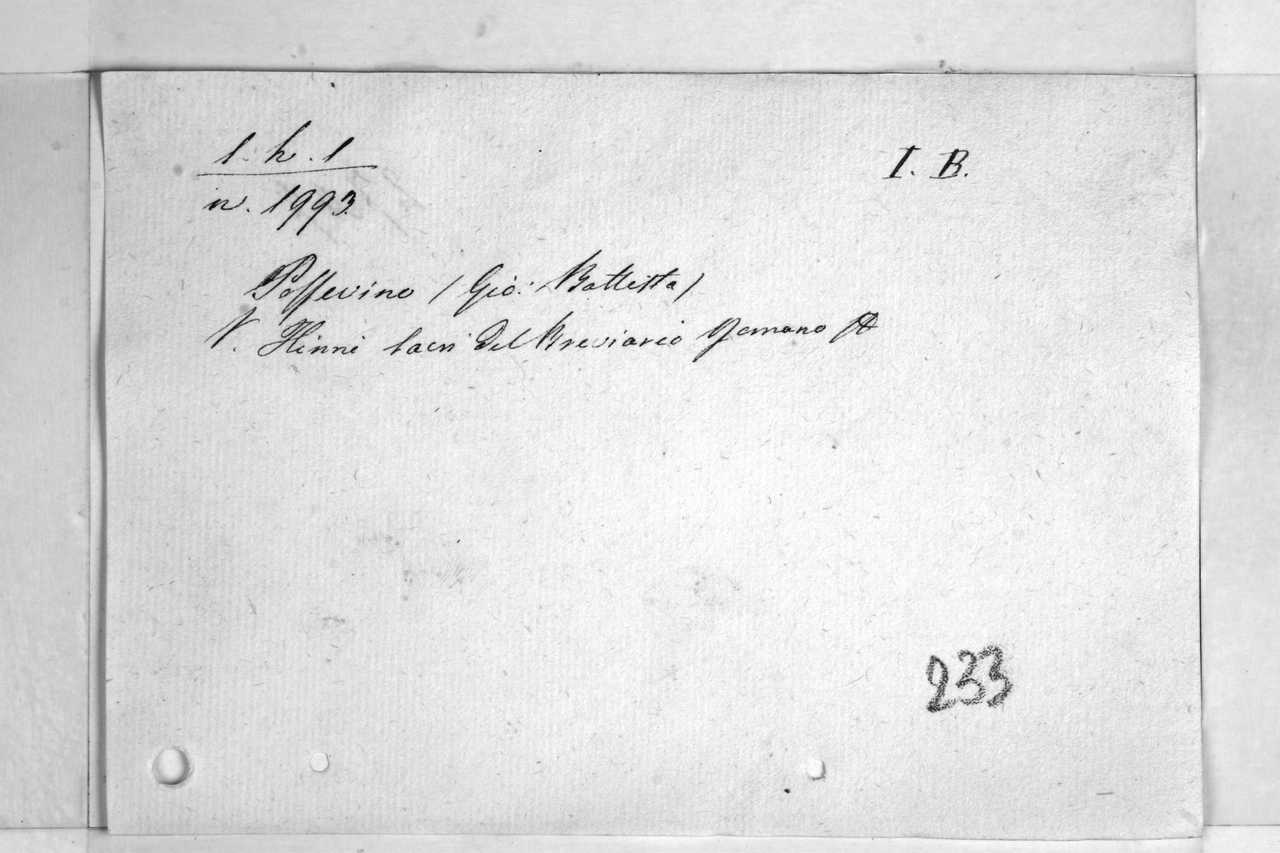 1. h. 1
I. B.
n. 1993.
Possevino (Gio: Battista)
V. Hinni sacri del Breviario Romano &
233